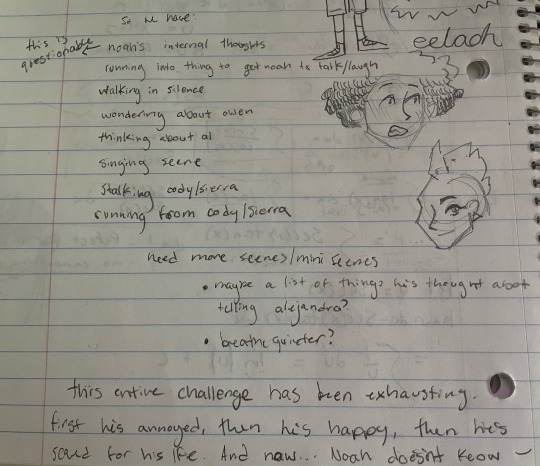 So we have:
eelach
this is questionable
noah's internal thoughts
running into thing to get noah to talk/laugh
walking in silence
wondering about owen
thinking about al
singing scene
stalking cody/sierra
running from cody/sierra
need more scenes/mini scenes
• maybe a list of things he's thought about
telling alejandro?
• breathe quieter?
this entire challenge has been exhausting.
first he's annoyed, then he's happy, then he's
scared for his life. And now... Noah doesn't know –